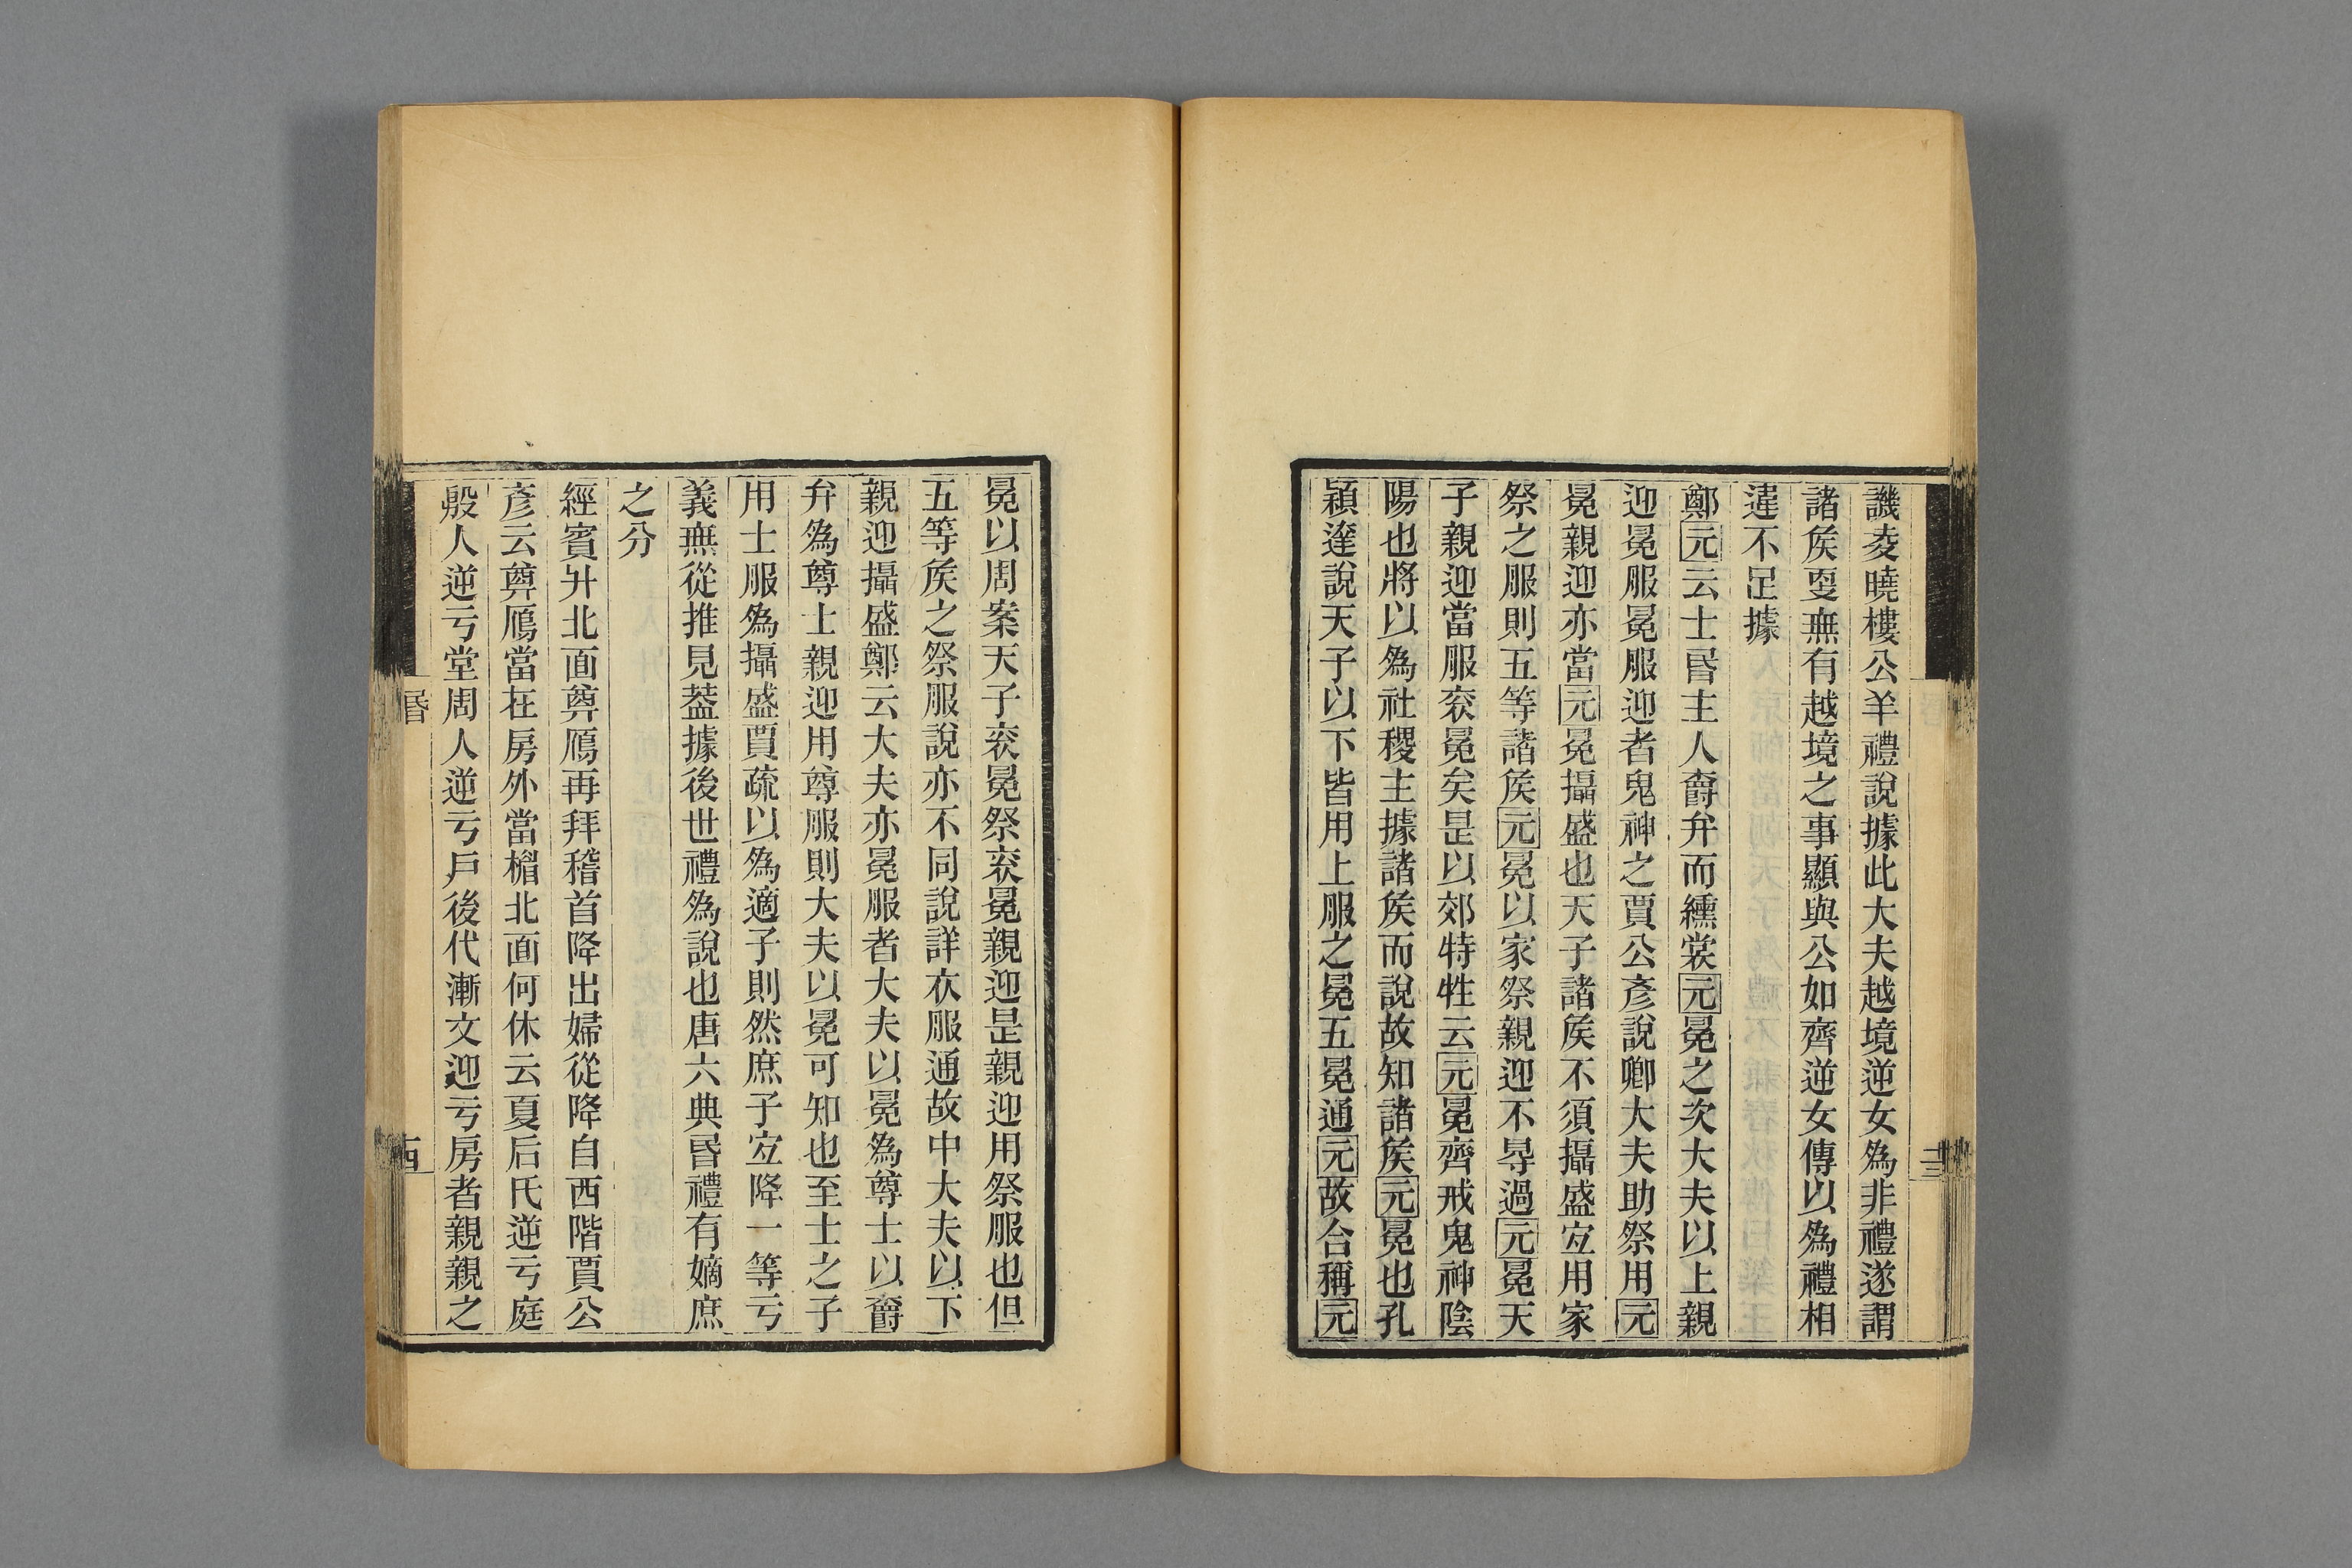 譏凌曉樓公羊禮說據此大夫越境逆女爲非禮遂謂
諸矦娶無有越境之事顯與公如齊逆女傳以爲禮相
違不足據
鄭元云士昬主人爵弁而纁裳元冕之次大夫以上親
迎冕服冕服迎者鬼神之賈公彥說卿大夫助祭用元
冕親迎亦當元冕攝盛也天子諸矦不須攝盛宜用家
祭之服則五等諸矦元冕以家祭親迎不㝵過元冕天
子親迎當服衮冕矣是以郊特牲云元冕齊戒鬼神陰
陽也將以爲社稷主據諸矦而說故知諸矦元冕也孔
穎達說天子以下皆用上服之冕五冕通元故合稱元
冕以周案天子衮冕祭衮冕親迎是親迎用祭服也但
五等矦之祭服說亦不同說詳衣服通故中大夫以下
親迎攝盛鄭云大夫亦冕服者大夫以冕爲尊士以爵
弁爲尊士親迎用尊服則大夫以冕可知也至士之子
用士服爲攝盛賈疏以爲適子則然庶子宜降一等亏
義無從推見葢據後世禮爲說也唐六典昬禮有嫡庶
之分
經賓升北面奠鴈再拜稽首降出婦從降自西階賈公
彥云奠鴈當在房外當楣北面何休云夏后氏逆亏庭
殷人逆亏堂周人逆亏戶後代漸文迎亏房者親親之
昬